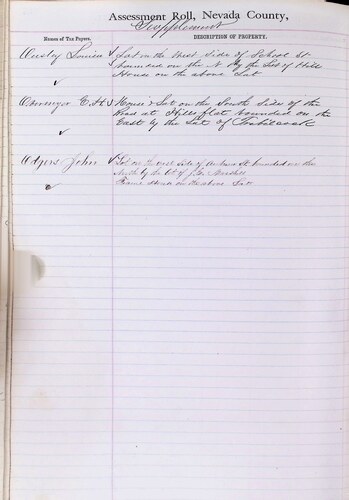 Assessment Roll, Nevada County,
Supplement
Names of Tax Payers. DESCRIPTION OF PROPERTY.
Louisa Lot on the West side of School St
bounded on the N by the Lot of Hill
House on the above Lot
E. H. House & Lot on the South side of the
Road at Hills flat bounded on the
East by the Lot of
Odgers John Lot on the east side of St bounded on the
North by the lot of
Frame House on the above Lot